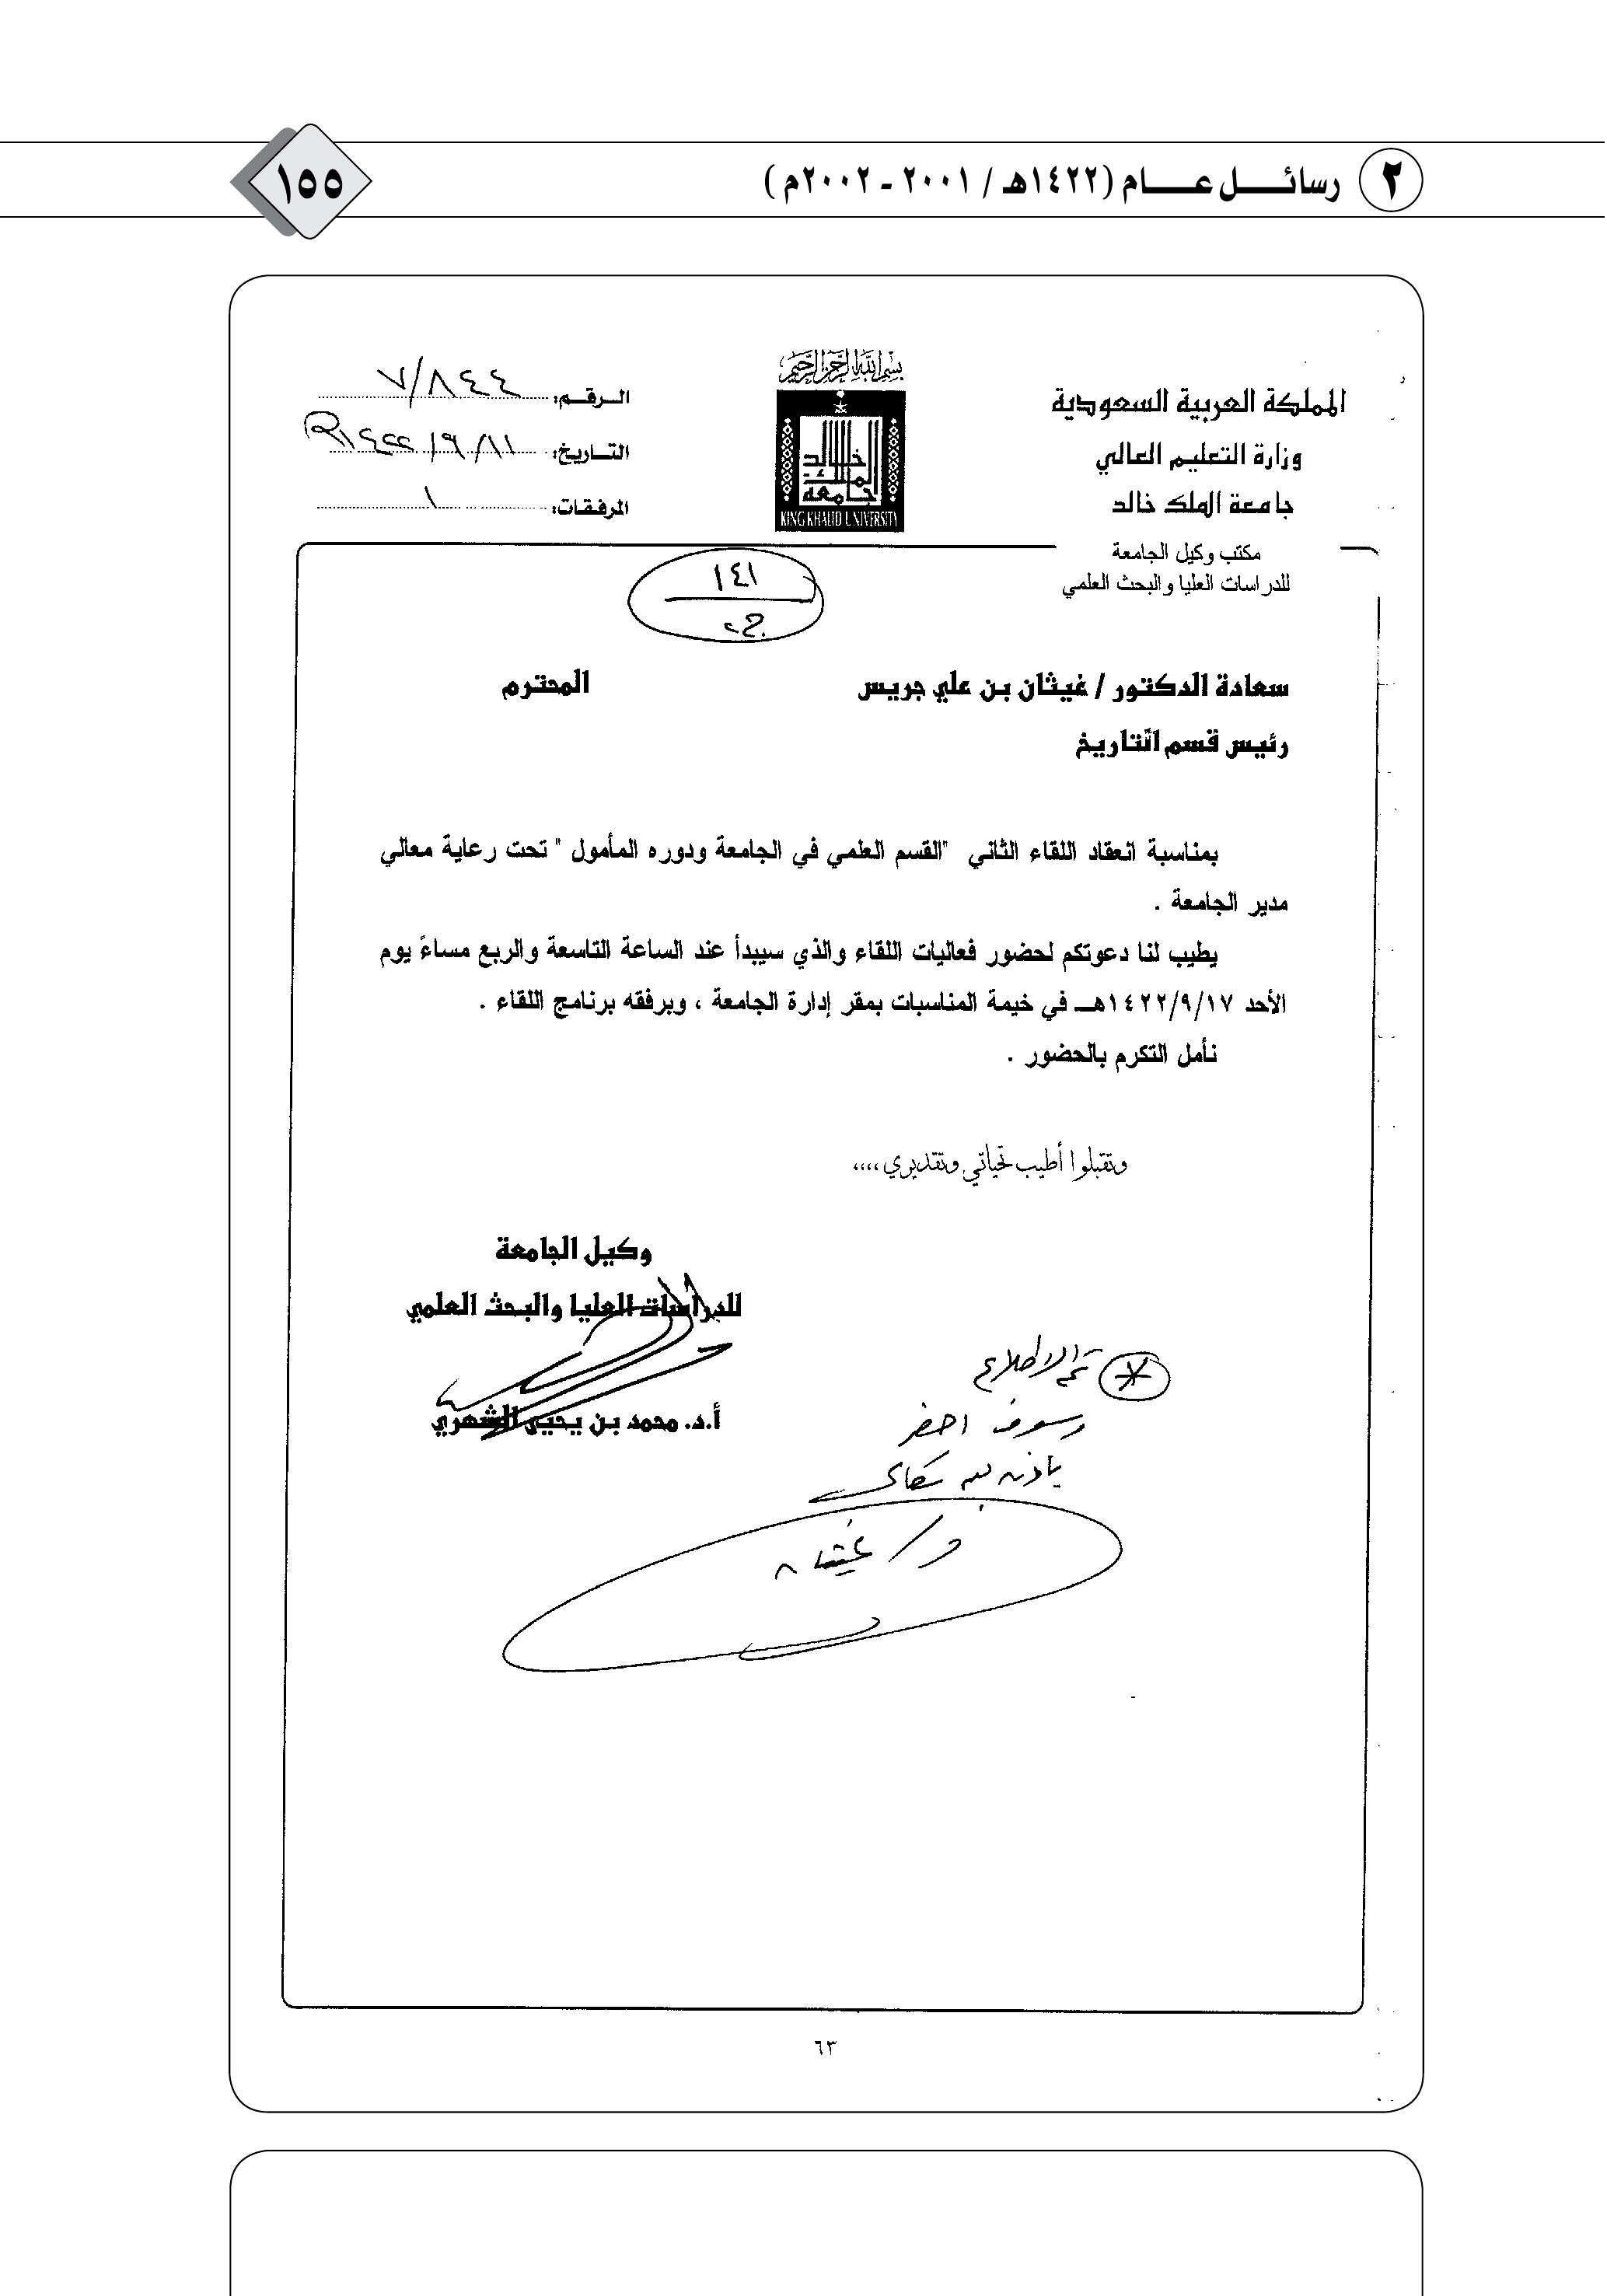 ٢ رسائـــل عـــــام (١٤٢٢هـ / ٢٠٠١ ـ ٢٠٠٢م )
١٥٥
بسم الله الرحمن الرحيم
المملكة العربية السعودية
وزارة التعليم العالي
جامعة الملك خالد
مكتب وكيل الجامعة
للدراسات العليا والبحث العلمي
جامعة الملك خالد
KING KHALID UNIVERSITY
الـرقـم: ٧/٨٤٤
التـاريخ: ١٤٢٢/٩/١١هـ
المرفقات: ١
١٤١
سعادة الدكتور / غيثان بن علي جريس المحترم
رئيس قسم التاريخ
بمناسبة انعقاد اللقاء الثاني "القسم العلمي في الجامعة ودوره المأمول " تحت رعاية معالي
مدير الجامعة .
يطيب لنا دعوتكم لحضور فعاليات اللقاء والذي سيبدأ عند الساعة التاسعة والربع مساءً يوم
الأحد ١٤٢٢/٩/١٧هــ في خيمة المناسبات بمقر إدارة الجامعة ، وبرفقه برنامج اللقاء .
نأمل التكرم بالحضور .
وتقبلوا أطيب تحياتي وتقديري ،،،،
وكيل الجامعة
للدراسات العليا والبحث العلمي
أ.د. محمد بن يحيى الشهري
تم الاطلاع
وسوف احضر
باذن الله تعالى
د / غيثان
٦٣